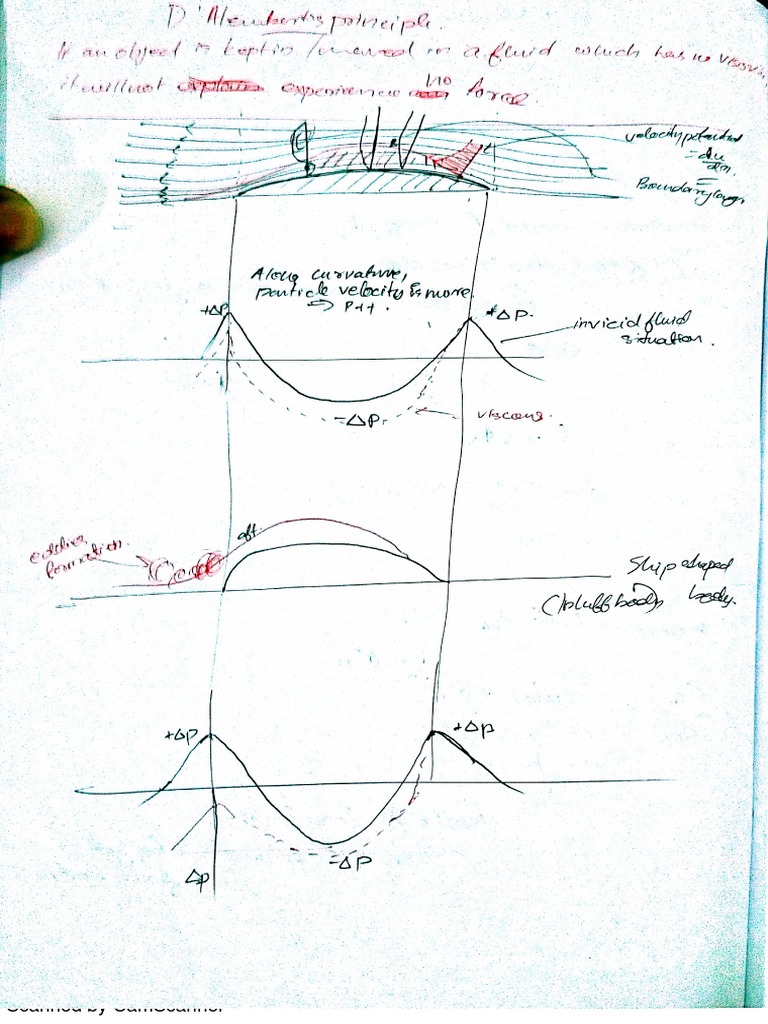 D'Alemberts principle.
If an object is kept in / moved in a fluid which has no
it will not experience no force.
velocity potential
= du/dn.
Boundary layer
Along curvature,
particle velocity is more
⇒ P++.
+ΔP
+ΔP.
invicid fluid
situation.
-ΔP.
viscous.
aft.
eddies
formation.
Ship shaped
(bluff body) body.
+ΔP
+ΔP
-ΔP
ΔP
Scanned by CamScanner